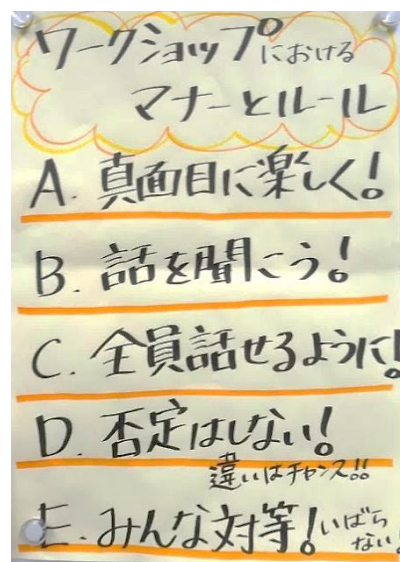 ワークショップにおける
マナーとルール
A. 真面目に楽しく!
B. 話を聞こう!
C. 全員話せるように!
D. 否定はしない!
違いはチャンス!!
E. みんな対等!いばら
ない!